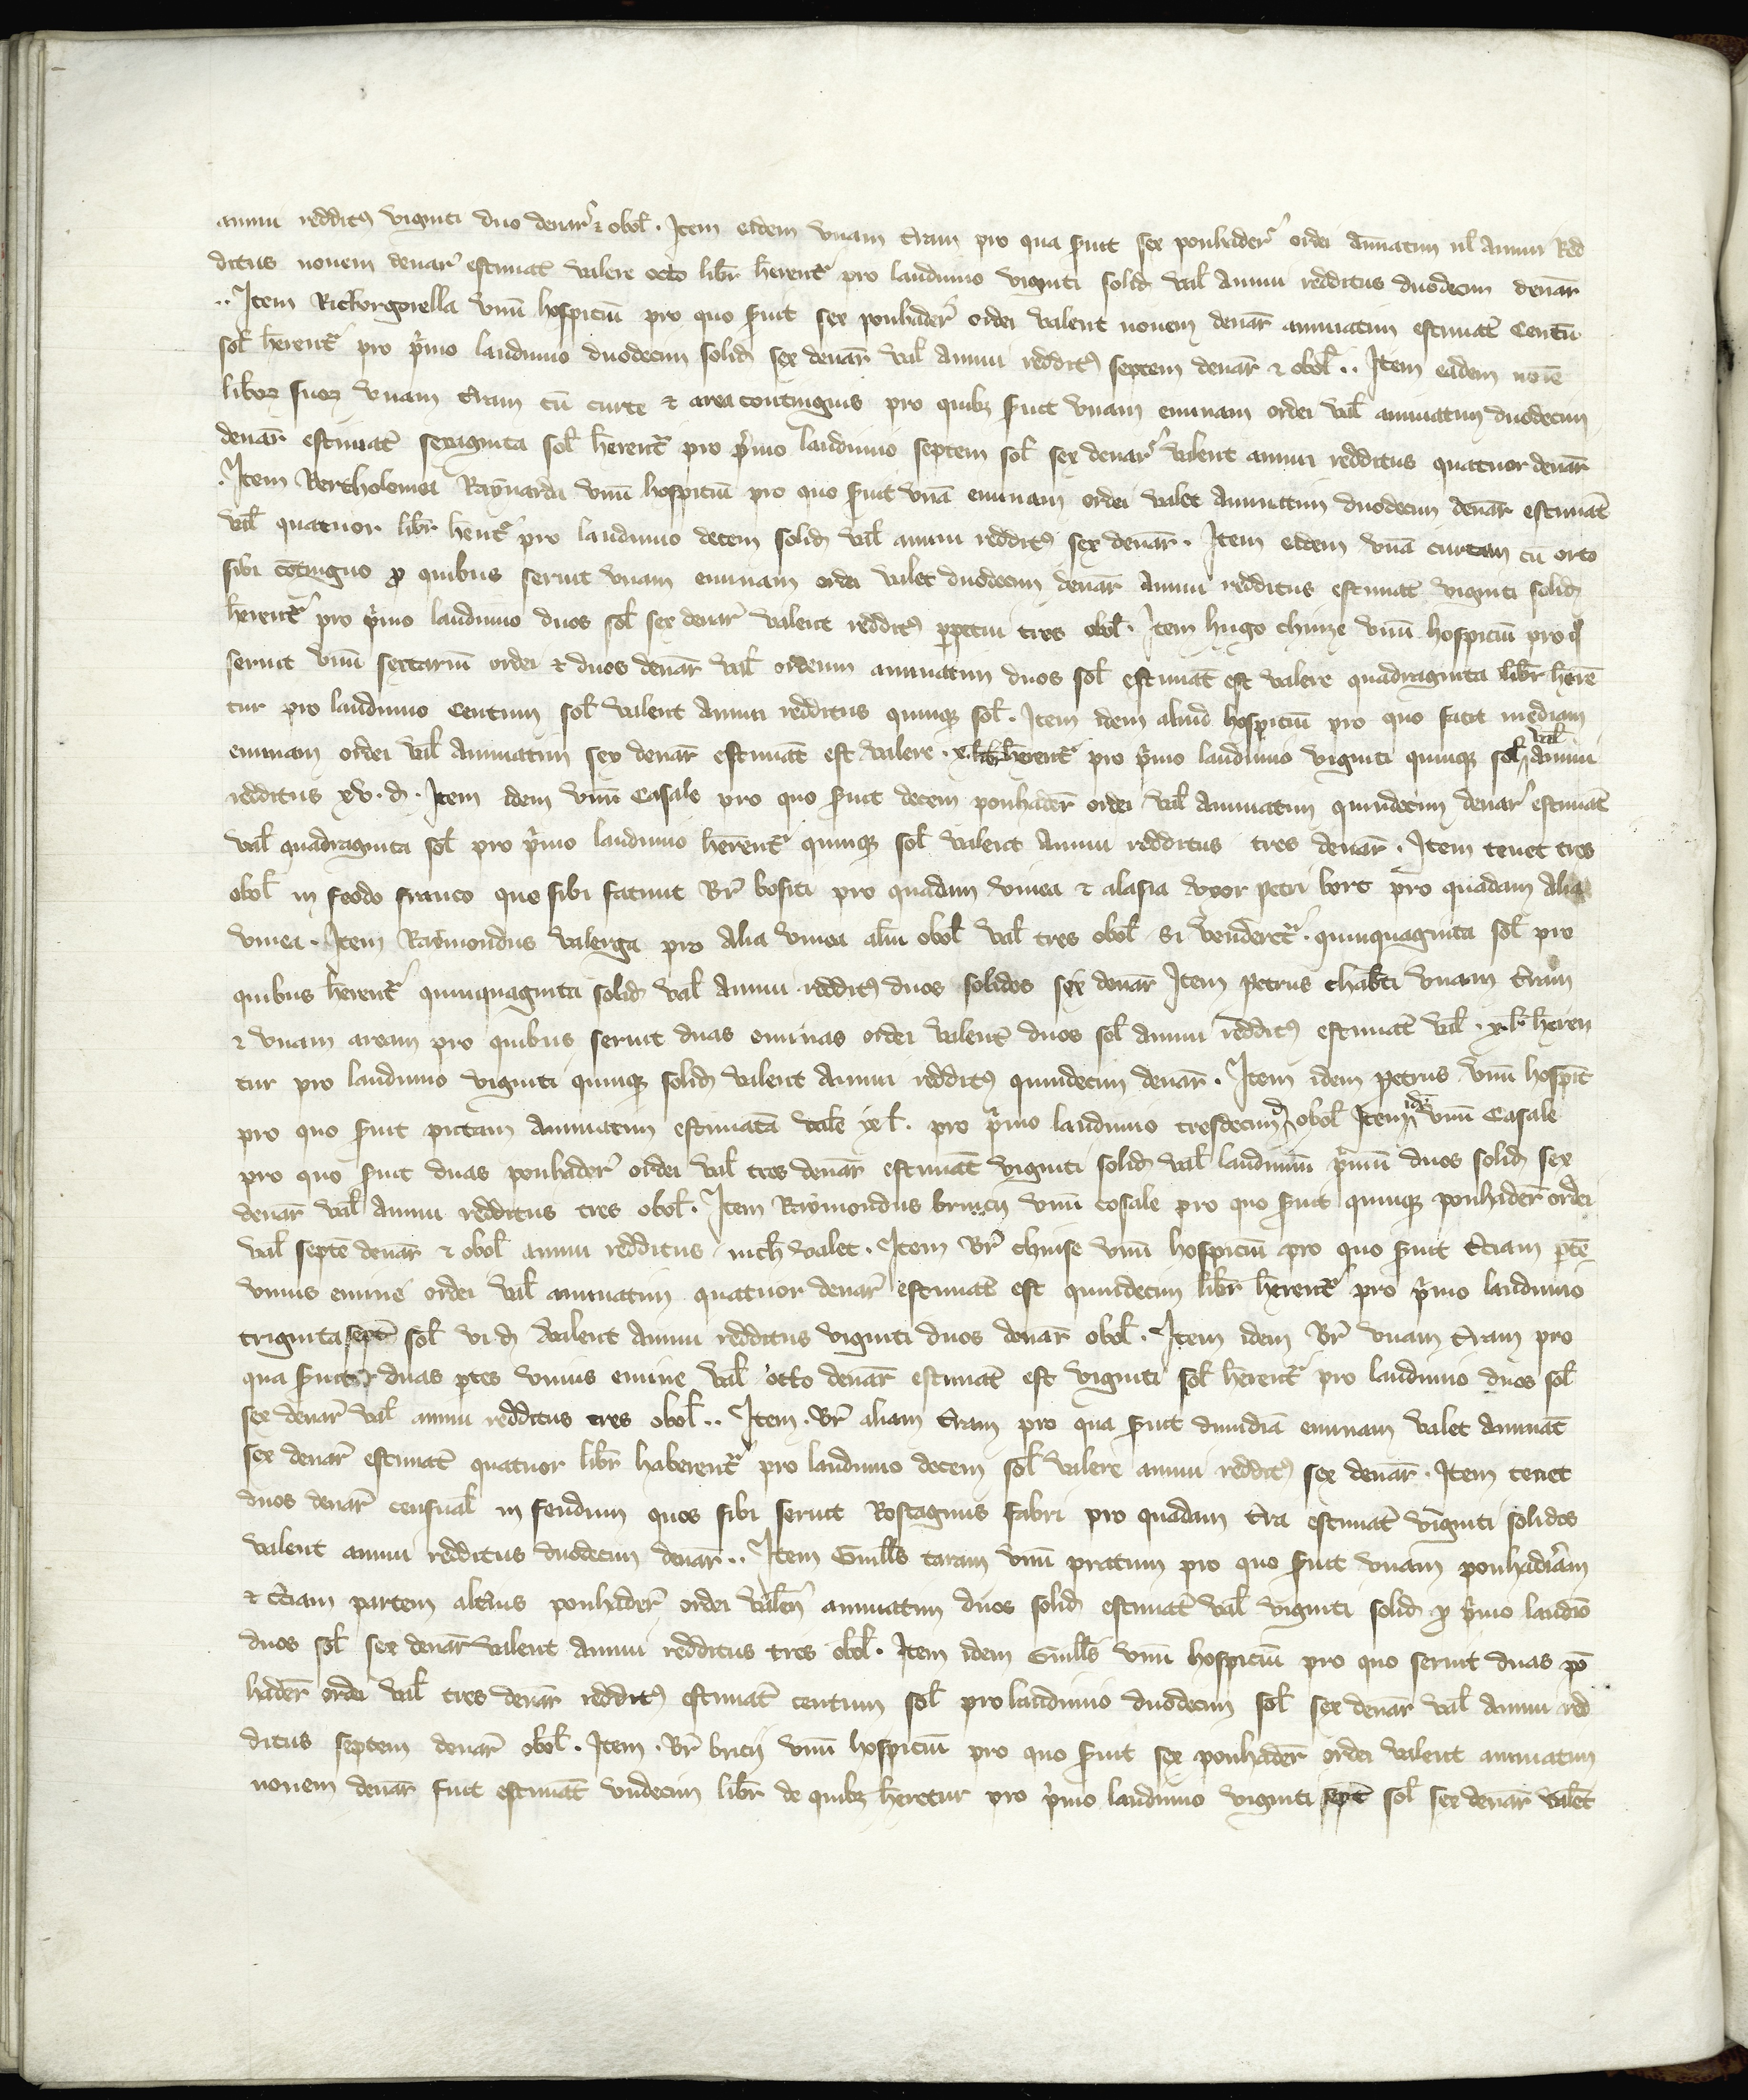 annui reddit9 viginti duo denar̄ ⁊ obol̄ . Item eidem vnam t̄ram pro qua s̄uit sex ponhader̄ ordei annuatim ul̄ annui Red
ditus nouem denar̄ estimat̄ valere octo libr̄ h̄erent̄ pro laudimio viginti solid̄ val̄ annui redditus duodecim denar̄
.. Item Rickorgorella vnū hospiciū pro quo s̄uit sex ponhader̄ ordei valent nouem denar̄ annuatim estimat̄ Centū
sol̄ h̄erent̄ pro p̄mo laudimio duodecim solid̄ sex denar̄ val̄ annui reddit9 septem denar̄ ⁊ obol̄ .. Item eadem noīe
liboꝝ suoꝝ vnam t̄ram cū curte ⁊ area contiguis pro quibꝫ s̄uit vnam eminam ordei val̄ annuatim duodecim
denar̄ estimat̄ sexaginta sol̄ h̄erent̄ pro p̄mo laudimio septem sol̄ sex denar̄ valent annui redditus quatuor denar̄
. Item Bertholomea Raynarda vnū hospiciū pro quo s̄uit vnā eminam ordei valet annuatim duodecim denar̄ estimat̄
val̄ quatuor libr̄ h̄ent̄ pro laudimio decem solid̄ val̄ annui reddit9 sex denar̄ . Item eidem vnā curtam cū orto
sibi cōtinguo ꝓ quibus seruit vnam eminam ordei valet duodecim denar̄ annui redditus estimat̄ viginti solid̄
h̄erent̄ pro p̄mo laudimio duos sol̄ sex denar̄ valent reddit9 ꝑpetui tres obol̄ . Item hugo chinze vnū hospiciū pro q̄
seruit vnū sextariū ordei ⁊ duos denar̄ val̄ ordeum annuatim duos sol̄ estimat̄ est valere quadraginta libr̄ h̄ere
tur pro laudimio Centum sol̄ valent annui redditus quinqꝫ sol̄ . Item idem aliud hospiciū pro quo facit mediam
eminam ordei val̄ annuatim sex denar̄ estimat̄ est valere . x. libr̄ h̄erent̄ pro p̄mo laudimio viginti quinqꝫ sol̄ val̄ annui
redditus xv. d̄ . Item idem vnū Casale pro quo s̄uit decem ponhader̄ ordei val̄ annuatim quindecim denar̄ estimat̄
val̄ quadraginta sol̄ pro p̄mo laudimio h̄erent̄ quinqꝫ sol̄ valent annui redditus tres denar̄ . Item tenet tres
obol̄ in feodo franco quo sibi faciunt Br̄ bositi pro quadam vinea ⁊ alasia vxor petri bort pro quadam alia
vinea . Item Raymondus valerga pro alia vinea aliū obol̄ val̄ tres obol̄ si venderet̄ . quinquaginta sol̄ pro
quibus h̄erent̄ quinquaginta solid̄ val̄ annui reddit9 duos solidos sex denar̄ Item petrus chab̄ti vnam t̄ram
⁊ vnam aream pro quibus seruit duas eminas ordei valent̄ duos sol̄ annui reddit9 estimat̄ val̄ . x. l̄ . h̄eren
tur pro laudimio viginti quinqꝫ solid̄ valent annui reddit9 quindecim denar̄ . Item idem petrus vnū hospic̄
pro quo s̄uit pictam annuatim estimatā vale xl̄ . pro p̄mo laudimio tresdecim d̄ obol̄ Item idē vnū Casale
pro quo s̄uit duas ponhader̄ ordei val̄ tres denar̄ estimat̄ viginti solid̄ val̄ laudimiū p̄mū duos solid̄ sex
denar̄ val̄ annui redditus tres obol̄ . Item Raymondus bruicii vnū cosale pro quo s̄uit quinqꝫ ponhader̄ ordei
val̄ septē denar̄ ⁊ obol̄ annui redditus nich̄ valet . Item Br̄ chinse vnū hospiciū pro quo s̄uit t̄ciam ptē
vnius emine ordei val̄ annuatim quatuor denar̄ estimat̄ est quindecim libr̄ h̄erent̄ pro p̄mo laudimio
triginta sept̄ sol̄ vi d̄ valent annui redditus viginti duos denar̄ obol̄ . Item idem Br̄ vnam t̄ram pro
qua s̄uit duas ptes vnius emine val̄ octo denar̄ estimat̄ est viginti sol̄ h̄erent̄ pro laudimio duos sol̄
sex denar̄ val̄ annui redditus tres obol̄ .. Item . Br̄ aliam t̄ram pro qua s̄uit dimidiā eminam valet annuat̄
sex denar̄ estimat̄ quatuor libr̄ haberent̄ pro laudimio decem sol̄ valere annui reddit9 sex denar̄ . Item tenet
duos denar̄ censual̄ in feudum quos sibi seruit Rostagnus fabri pro quadam t̄ra estimat̄ viginti solidos
valent annui redditus duodecim denar̄ .. Item Guill̄s taram vnū pratum pro quo s̄uit vnam ponhadr̄am
⁊ t̄ciam partem alt̄ius ponhader̄ ordei valen̄ annuatim duos solid̄ estimat̄ val̄ viginti solid̄ ꝓ p̄mo laudīo
duos sol̄ sex denar̄ valent annui redditus tres obol̄ . Item idem Guill̄s vnū hospiciū pro quo seruit duas pō
hader̄ ordei val̄ tres denar̄ reddit9 estimat̄ centum sol̄ pro laudimio duodecim sol̄ sex denar̄ val̄ annui red
ditus septem denar̄ obol̄ . Item . Br̄ bricii vnū hospiciū pro quo s̄uit sex ponhader̄ ordei valent annuatim
nouem denar̄ fuit estimat̄ vndecim libr̄ de quibꝫ h̄eretur pro p̄mo laudimio viginti sept̄ sol̄ sex denar̄ valēt